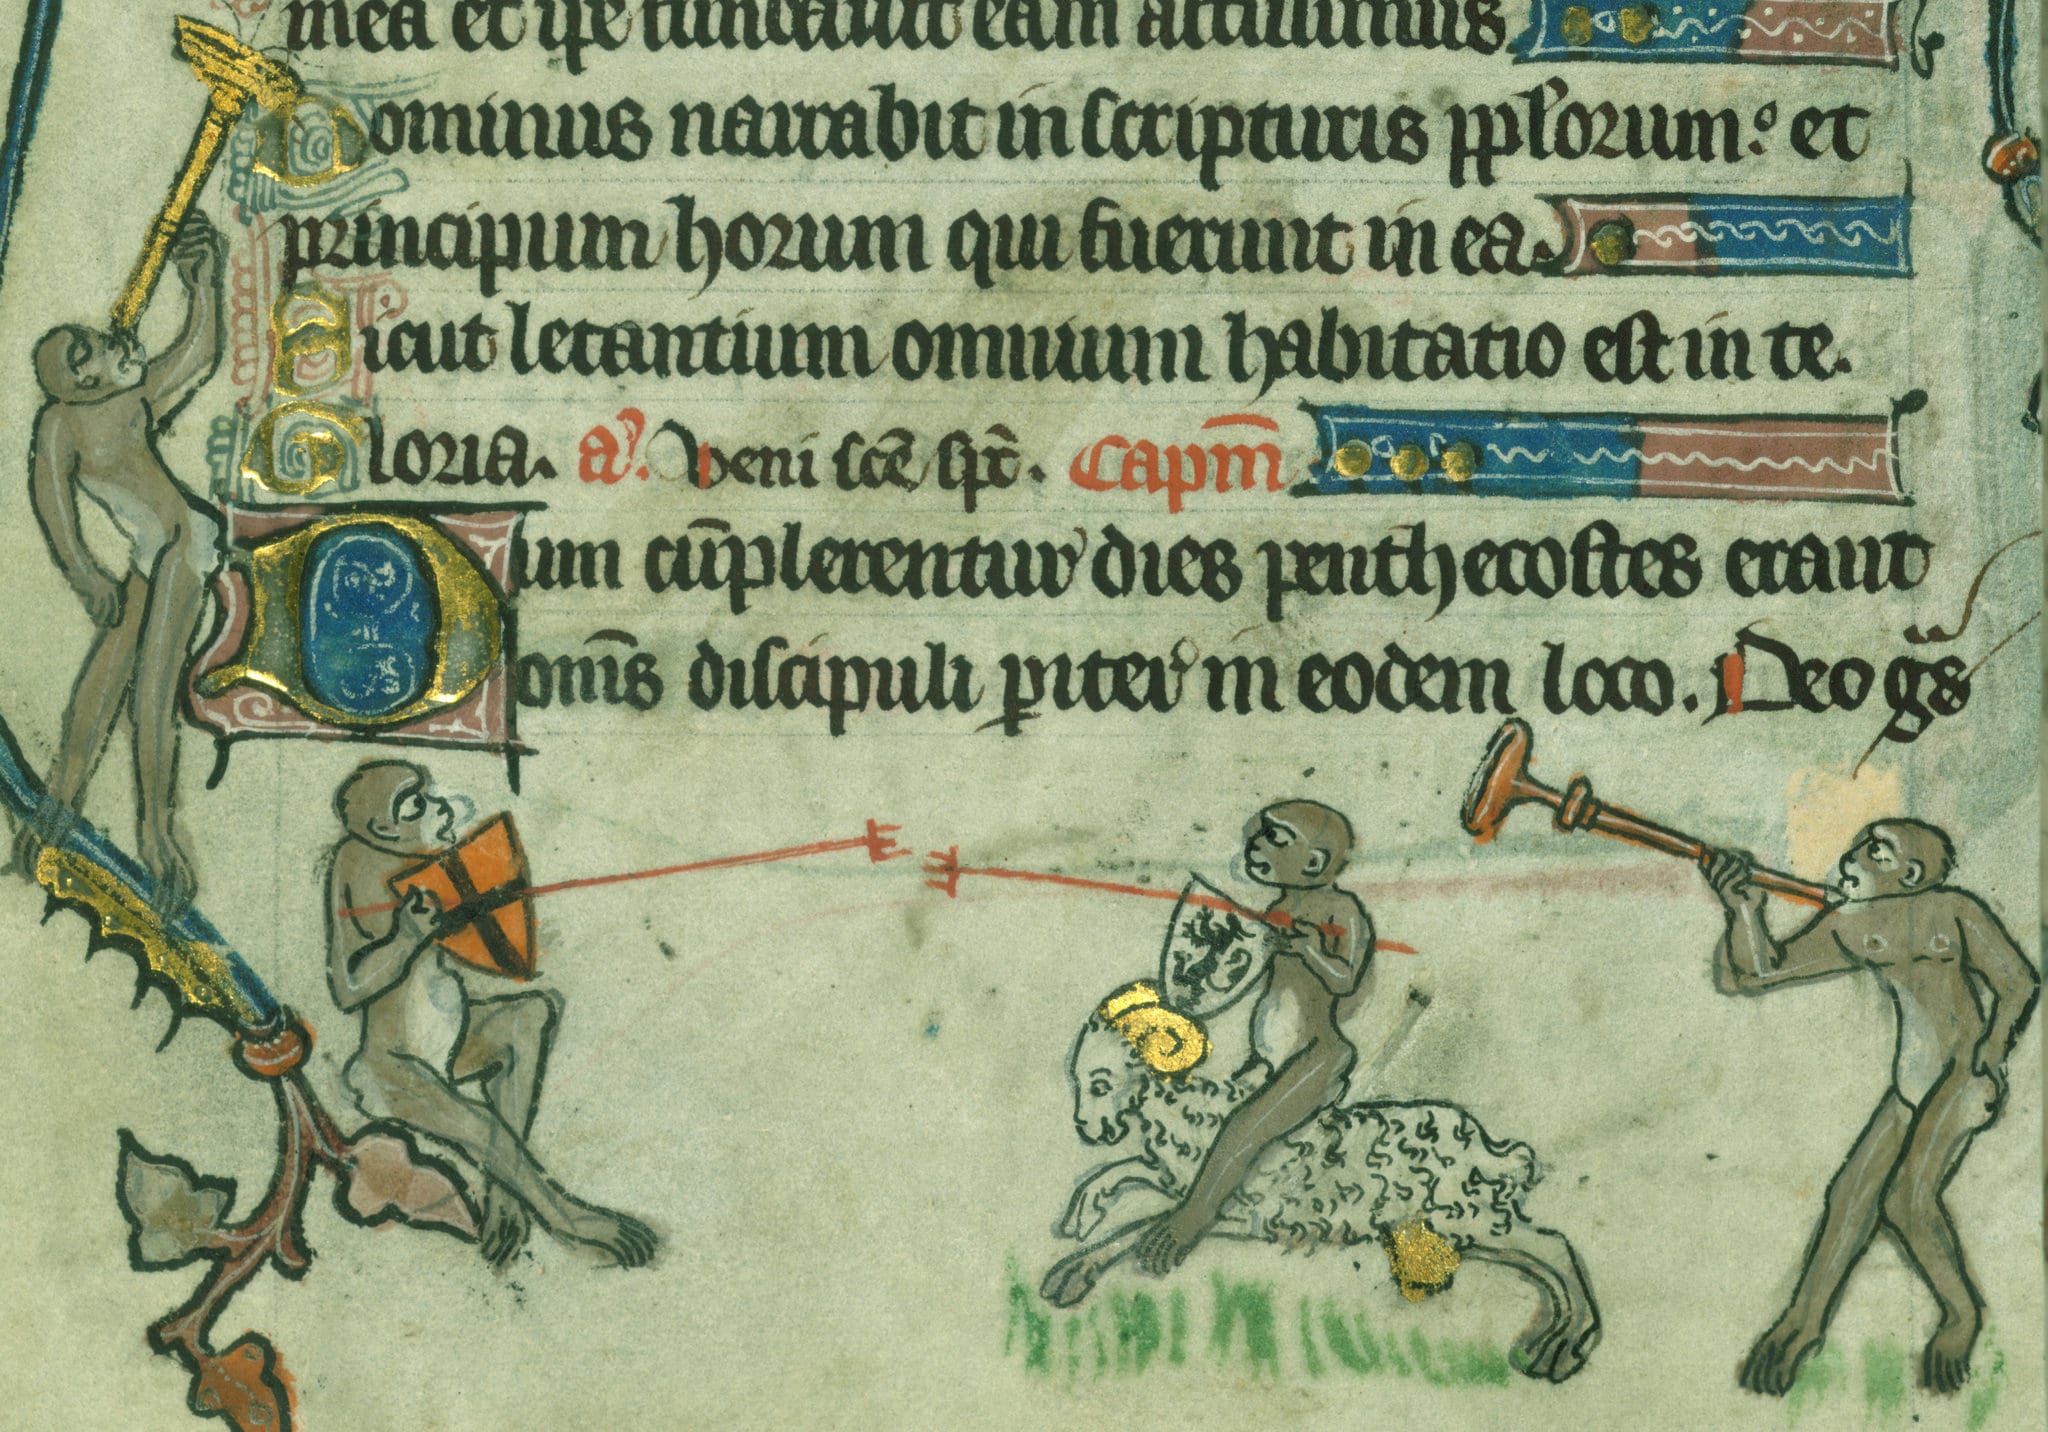 mea et ipse fundauit eam altissimus
Dominus narrabit in scripturis pplorum: et
principum horum qui fuerunt in ea.
Sicut letantium omnium habitatio est in te.
Gloria. a. Veni sce spc. Capm
Dum cumplerentur dies penthecostes erant
omis discipuli piter in eodem loco. Deo gas